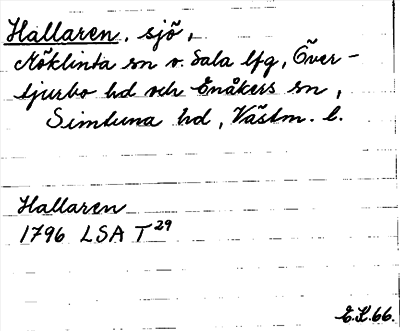 Hallaren, sjö,
Nöklinta sn o. Sala lfg, Över-
tjurbo hd och Enåkers sn,
Simtuna hd, Västm. l.
Hallaren
1796 LSA T29
E.K.66.